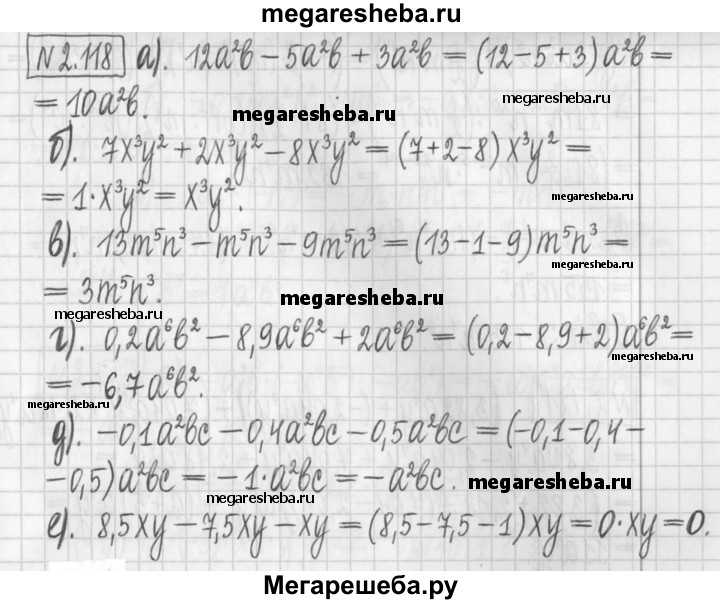 megaresheba.ru
N 2.118 а). 12a²b − 5a²b + 3a²b = (12−5+3)a²b =
= 10a²b.
megaresheba.ru
megaresheba.ru
б). 7x³y² + 2x³y² − 8x³y² = (7+2−8)x³y² =
= 1·x³y² = x³y².
megaresheba.ru
в). 13m⁵n³ − m⁵n³ − 9m⁵n³ = (13−1−9)m⁵n³ =
megaresheba.ru
= 3m⁵n³.
megaresheba.ru
megaresheba.ru
г). 0,2a⁶b² − 8,9a⁶b² + 2a⁶b² = (0,2−8,9+2)a⁶b² =
megaresheba.ru
= −6,7a⁶b².
megaresheba.ru
д). −0,1a²bc − 0,4a²bc − 0,5a²bc = (−0,1−0,4−
−0,5)a²bc = −1·a²bc = −a²bc.
megaresheba.ru
megaresheba.ru
е). 8,5xy − 7,5xy − xy = (8,5−7,5−1)xy = 0·xy = 0.
Мегарешеба.ру